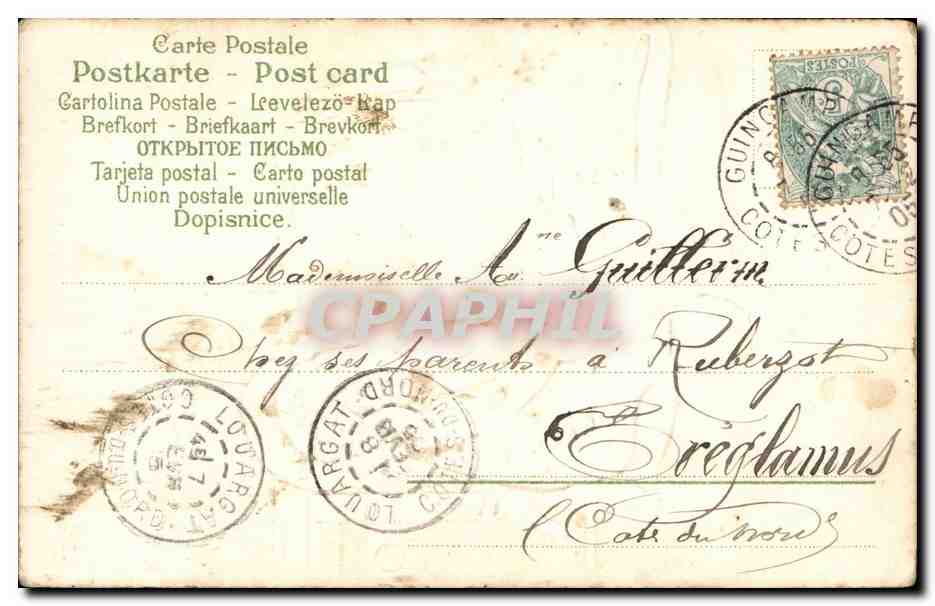 Carte Postale
Postkarte - Post card
Cartolina Postale - Levelezö-Lap
Brefkort - Briefkaart - Brevkort
ОТКРЫТОЕ ПИСЬМО
Tarjeta postal - Carto postal
Union postale universelle
Dopisnice.
POSTES
5
GUINGAMP
8
COTES
GUINGAMP
8
05
COTES
Mademoiselle A ne Guillerm
CPAPHIL
Chez ses parents à Ruberzot
Tréglamus
(Côte du Nord)
LOUARGAT
7
LOUARGAT
8
COTES-DU-NORD